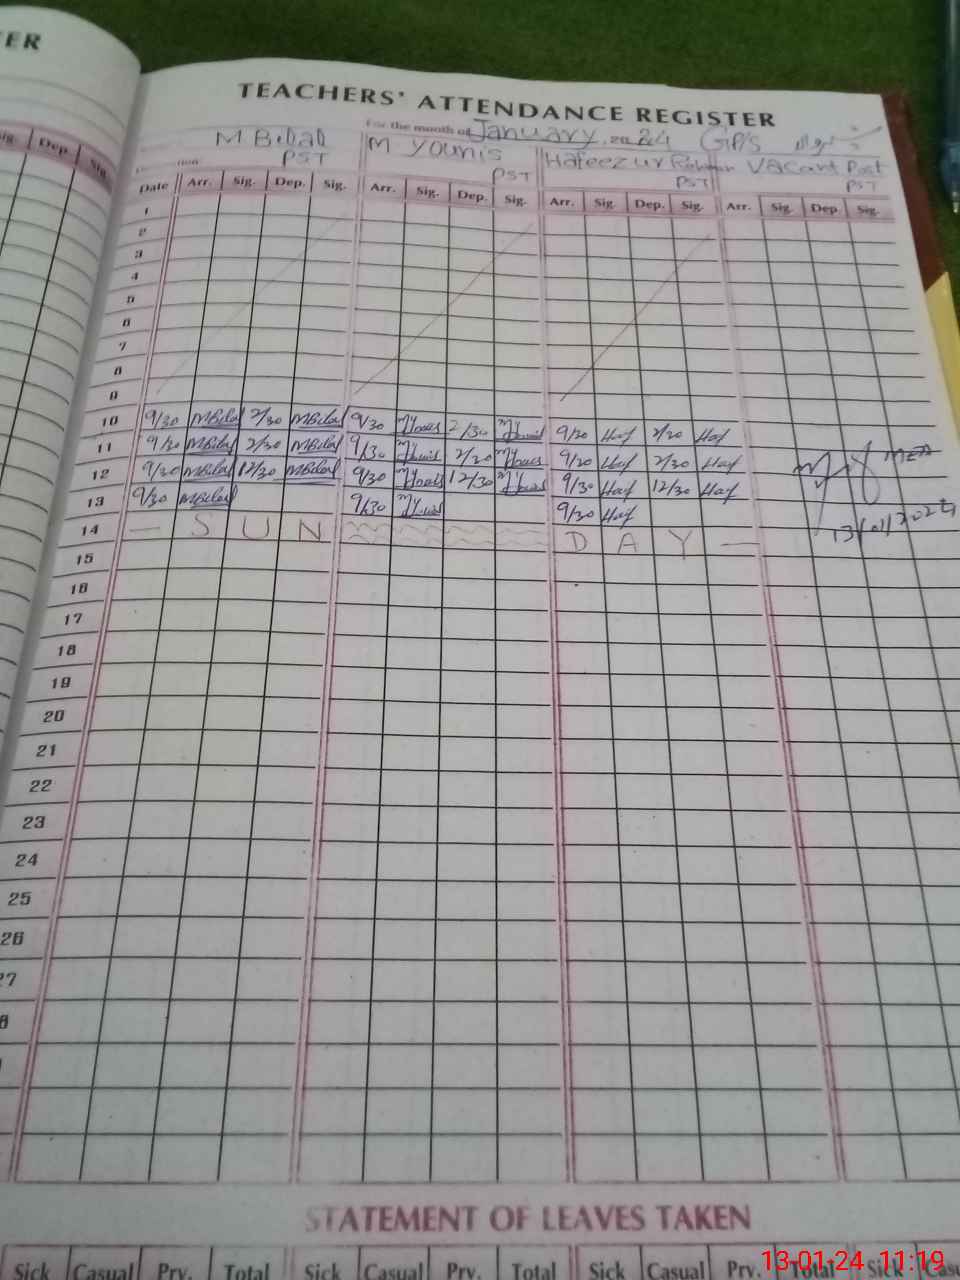 ER
TEACHERS' ATTENDANCE REGISTER
For the month of January, 2024 GPS
M Bilal M Younis Hafeez ur Rehman Vacant Post
PST PST PST PST
Sig. Dep. Sig.
Date Arr. Sig. Dep. Sig. Arr. Sig. Dep. Sig. Arr. Sig. Dep. Sig. Arr. Sig. Dep. Sig.
1
2
3
4
5
6
7
8
9
10 9/30 MBilal 2/30 MBilal 9/30 MYounis 2/30 MYounis 9/30 Haf 2/30 Haf
11 9/30 MBilal 2/30 MBilal 9/30 MYounis 2/30 MYounis 9/30 Haf 2/30 Haf
12 9/30 MBilal 12/30 MBilal 9/30 MYounis 12/30 MYounis 9/30 Haf 12/30 Haf
13 9/30 MBilal 9/30 MYounis 9/30 Haf
MEA
13/01/2024
14 — S U N D A Y —
15
16
17
18
19
20
21
22
23
24
25
26
27
8
STATEMENT OF LEAVES TAKEN
Sick Casual Prv. Total Sick Casual Prv. Total Sick Casual Prv. Total Sick Casu
13-01-24 11:19